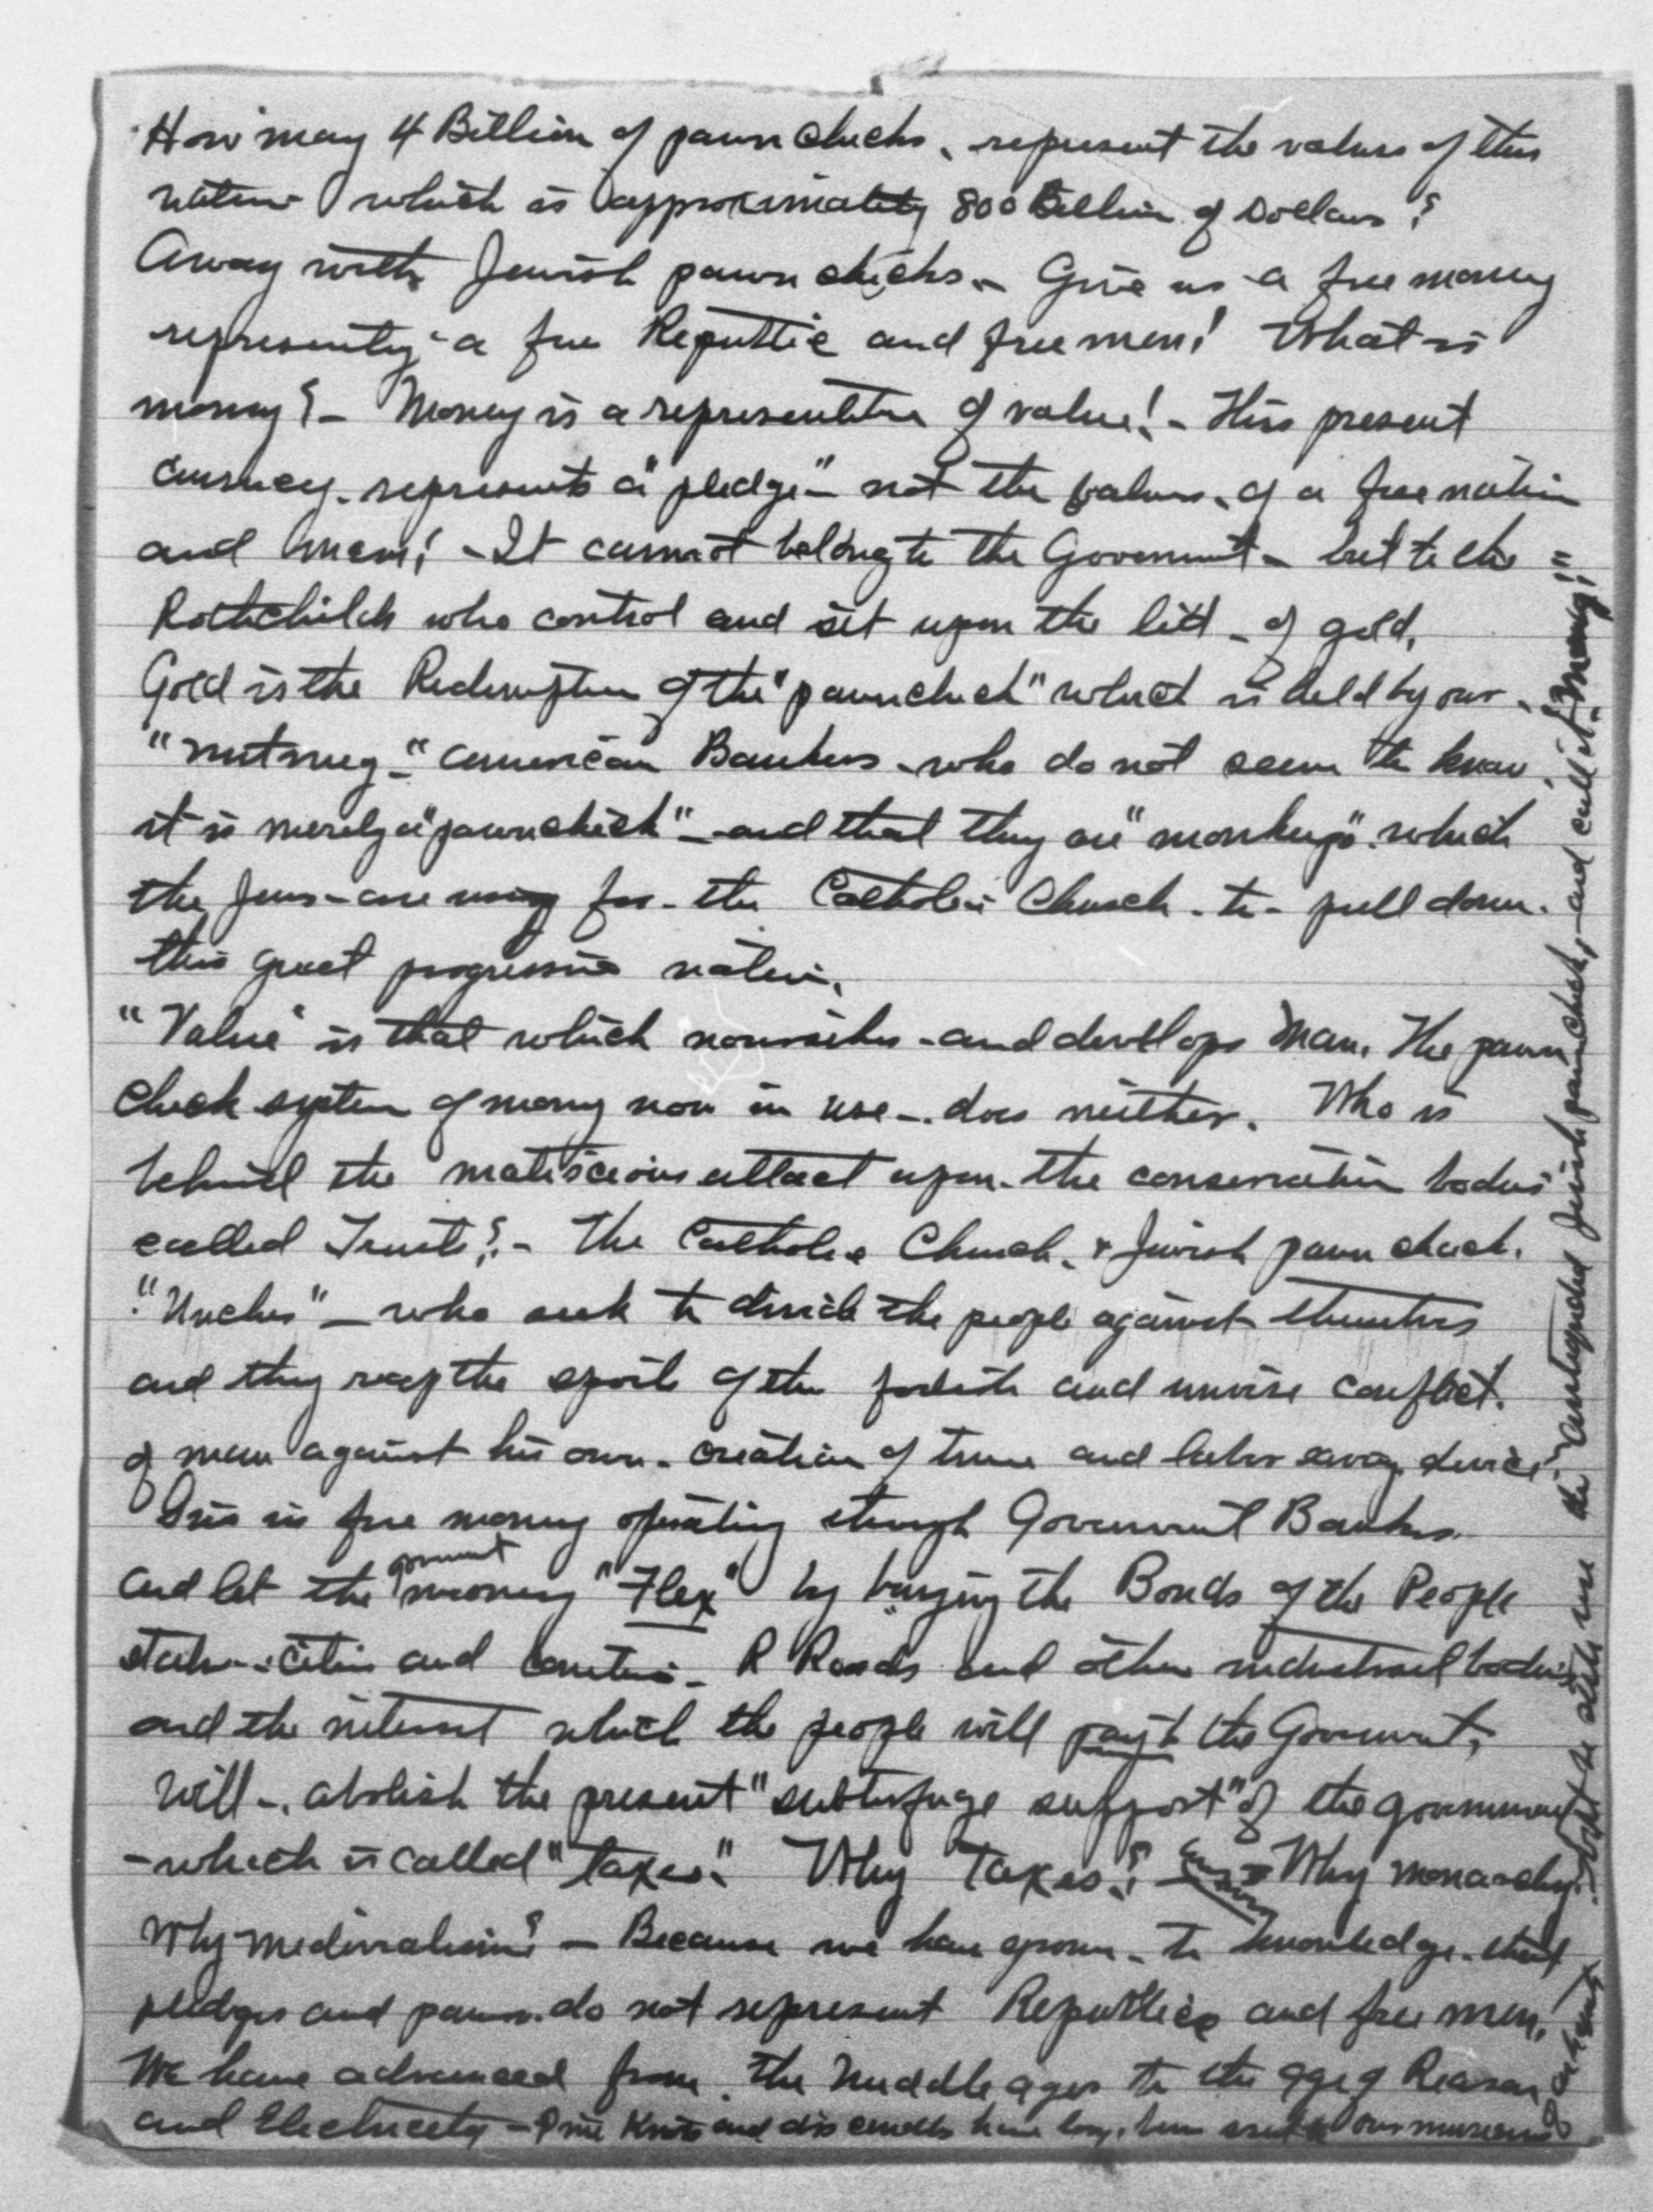 How may 4 Billion of pawn checks, represent the values of this
nation which is approximately 800 Billion of Dollars?
Away with Jewish pawn checks. Give us a free money
representing a free Republic and free men! What is
money? - Money is a representative of value! - This present
currency. represents a "pledge" not the values. of a free nation
and men! - It cannot belong to the Goverment - but to the
Rothchilds who control and sit upon the lid - of gold.
Gold is the Redemption of the "pawncheck" which is held by our
"nutmeg" american Bankers - who do not seem to know
it is merely a "pawncheck" - and that they are "monkeys" which
the Jews - are using for - the Catholic Church - to - pull down.
this great progressive nation.
"Value" is that which nourishes - and develops man. The pawn
check system of money now in use -. does neither. Who is
behind the attact upon - the conservation bodies
called Trusts? - The Catholic Church. & Jewish pawn check.
"Uncles" - who seek to divide the people against themselves
and they reap the spoils of the foolish and unwise conflict.
of man against his own - creation of time and labor saving device.
Give us free money operating through Goverment Banks
and let the government money "Flex" by buying the Bonds of the People
states - cities and counties - R Roads and other industrial bodies
and the interest which the people will pay to the Goverment,
will -. abolish the present "subterfuge support" of the government
- which is called "taxes". Why Taxes? Why monarchy.
Why medievalism? - Because we have grown - to knowledge - that
pledges and pawns. do not represent Republics and free men.
We have advanced from. the middle ages to the age of Reason
and Electricity - Pine Knots and candles have long. been our museums
use the antiquated Jewish pawnchecks, - and call it "Money!"